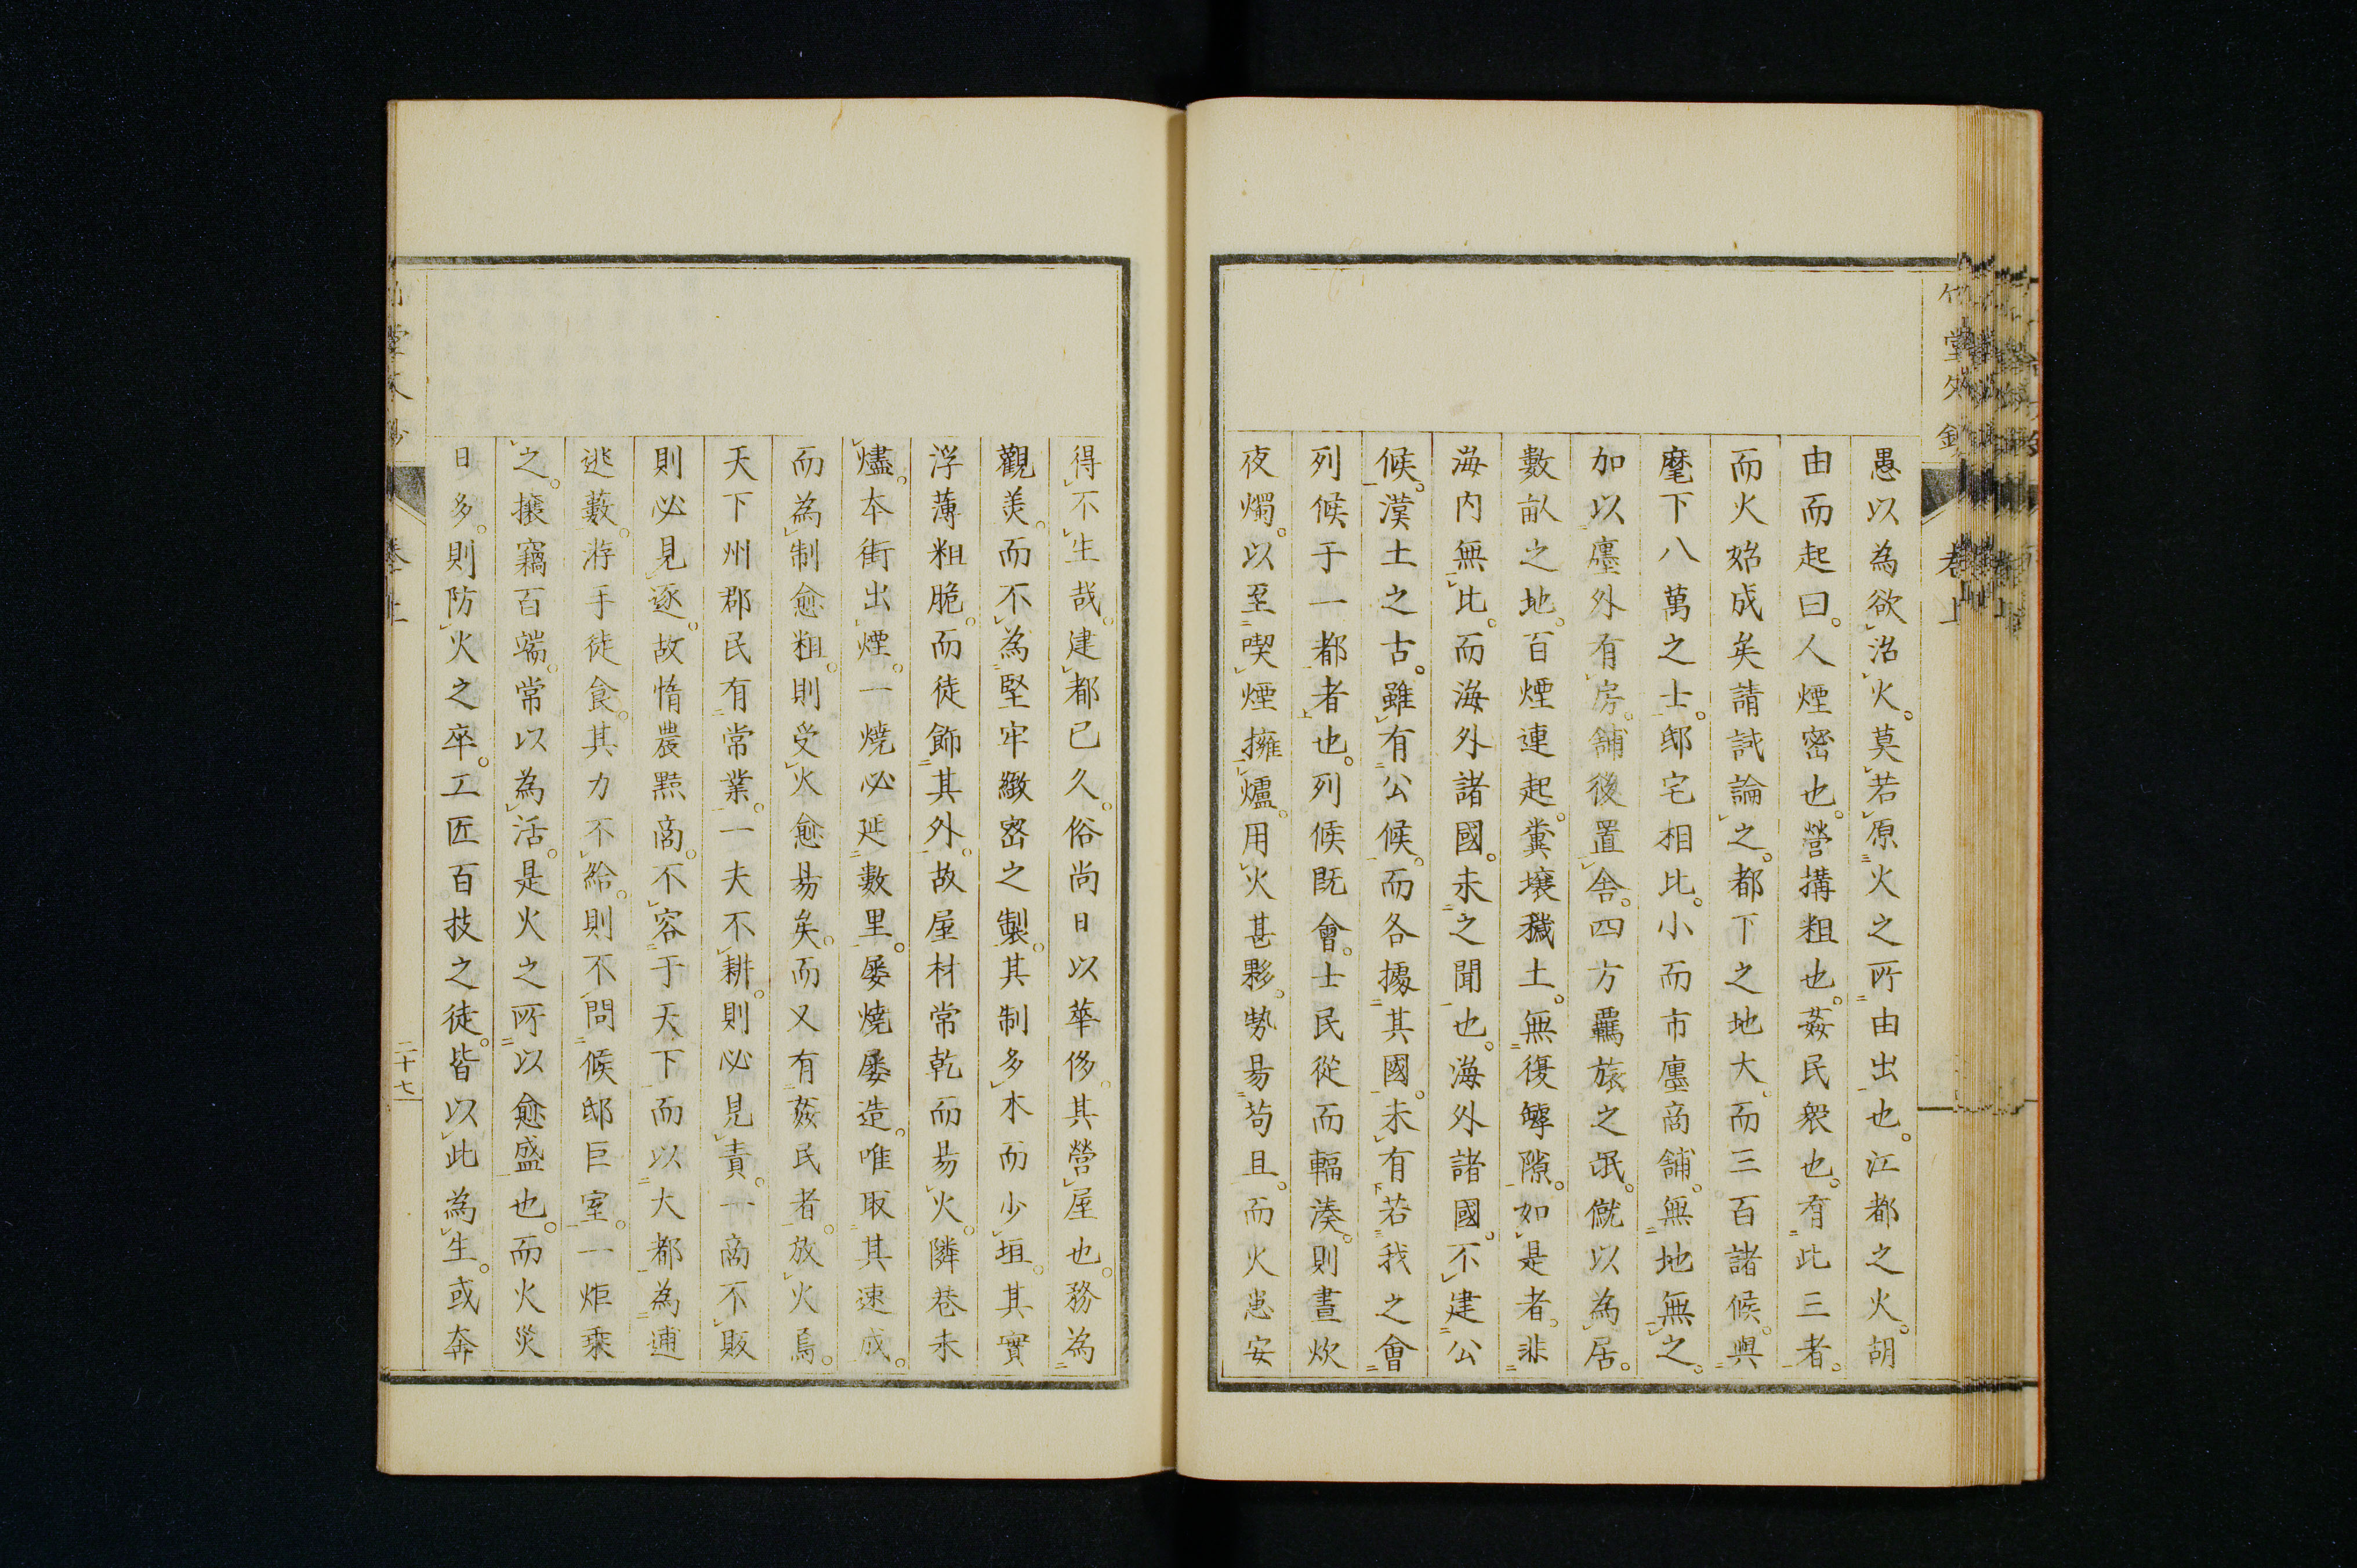 愚以為欲治火。莫若原火之所由出也。江都之火。胡
由而起曰。人煙密也。營搆粗也。姦民衆也。有此三者。
而火始成矣請試論之。都下之地大。而三百諸侯。與
麾下八萬之士。邸宅相比。小而市廛商舖。無地無之。
加以廛外有房。舖後置舎。四方羈旅之氓。僦以為居。
數畝之地。百煙連起。糞壤穢土。無復罅隙。如是者。非
海内無比。而海外諸國。未之聞也。海外諸國。不建公
侯。漢土之古。雖有公侯。而各據其國。未有若我之會
列侯于一都者也。列侯既會。士民從而輻湊。則晝炊
夜燭。以至喫煙擁爐。用火甚夥。勢易苟且。而火患安
得不生哉。建都已久。俗尚日以華侈。其營屋也。務為
觀美。而不為堅牢緻密之製。其制多木而少垣。其實
浮薄粗脆。而徒飾其外。故屋材常乾而易火。隣巷未
燼。本街出煙。一燒必延數里。屡燒屡造。唯取其速成。
而為制愈粗。則受火愈易矣。而又有姦民者。放火焉。
天下州郡民有常業。一夫不耕。則必見責。一商不販
則必見逐。故惰農黠商。不容于天下而以大都為逋
逃藪。游手徒食。其力不給。則不問侯邸巨室。一炬乘
之。攘竊百端。常以為活。是火之所以愈盛也。而火災
日多。則防火之卒。工匠百技之徒。皆以此為生。或奔
卷上
二十七
竹堂文鈔
卷上